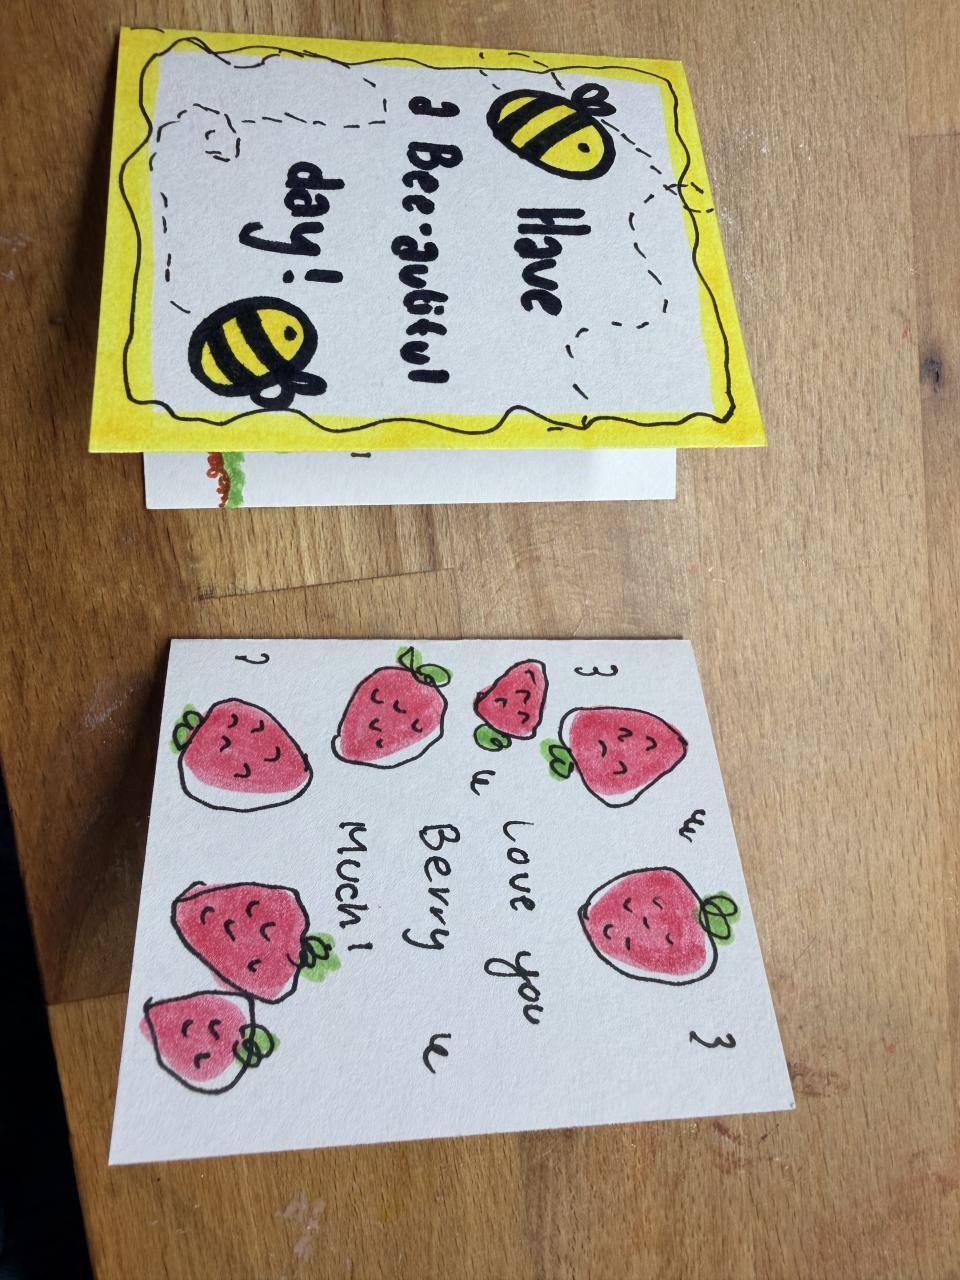 Have
a Bee-autiful
day!
Love you
Berry
Much!